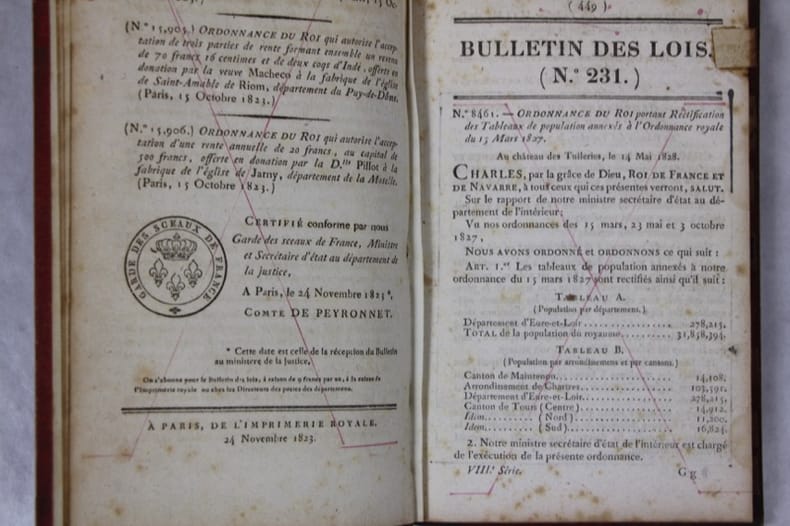 (N.º 15,905.) ORDONNANCE DU ROI qui autorise l'accep-
tation de trois parties de rente formant ensemble un revenu
de 70 francs 16 centimes et de deux coqs d'Inde, offerts en
donation par la veuve Macheco à la fabrique de l'église
de Saint-Amable de Riom, département du Puy-de-Dôme.
(Paris, 15 Octobre 1823.)
(N.º 15,906.) ORDONNANCE DU ROI qui autorise l'accep-
tation d'une rente annuelle de 20 francs, au capital de
500 francs, offerte en donation par la D.lle Pillot à la
fabrique de l'église de Jarny, département de la Moselle.
(Paris, 15 Octobre 1823.)
GARDE DES SCEAUX DE FRANCE
CERTIFIÉ conforme par nous
Garde des sceaux de France, Ministre
et Secrétaire d'état au département de
la justice,
A Paris, le 24 Novembre 1823 *,
COMTE DE PEYRONNET.
* Cette date est celle de la réception du Bulletin
au ministère de la Justice.
On s'abonne pour le Bulletin des lois, à raison de 9 francs par an, à la caisse de
l'Imprimerie royale ou chez les Directeurs des postes des départemens.
À PARIS, DE L'IMPRIMERIE ROYALE.
24 Novembre 1823.
(449)
BULLETIN DES LOIS.
(N.º 231.)
N.º 8461. — ORDONNANCE DU ROI portant Rectification
des Tableaux de population annexés à l'Ordonnance royale
du 15 Mars 1827.
Au château des Tuileries, le 14 Mai 1828.
CHARLES, par la grâce de Dieu, ROI DE FRANCE ET
DE NAVARRE, à tous ceux qui ces présentes verront, SALUT.
Sur le rapport de notre ministre secrétaire d'état au dé-
partement de l'intérieur;
Vu nos ordonnances des 15 mars, 23 mai et 3 octobre
1827,
NOUS AVONS ORDONNÉ ET ORDONNONS ce qui suit :
ART. 1.er Les tableaux de population annexés à notre
ordonnance du 15 mars 1827 sont rectifiés ainsi qu'il suit :
TABLEAU A.
(Population par département.)
Département d'Eure-et-Loir............... 278,215.
TOTAL de la population du royaume......... 31,858,394.
TABLEAU B.
(Population par arrondissemens et par cantons.)
Canton de Maintenon............... 14,108.
Arrondissement de Chartres............... 103,591.
Département d'Eure-et-Loir............... 278,215.
Canton de Tours (Centre)............... 14,912.
Idem............ (Nord)............... 11,200.
Idem............ (Sud)............... 16,824.
2. Notre ministre secrétaire d'état de l'intérieur est chargé
de l'exécution de la présente ordonnance.
VIII.e Série. Gg